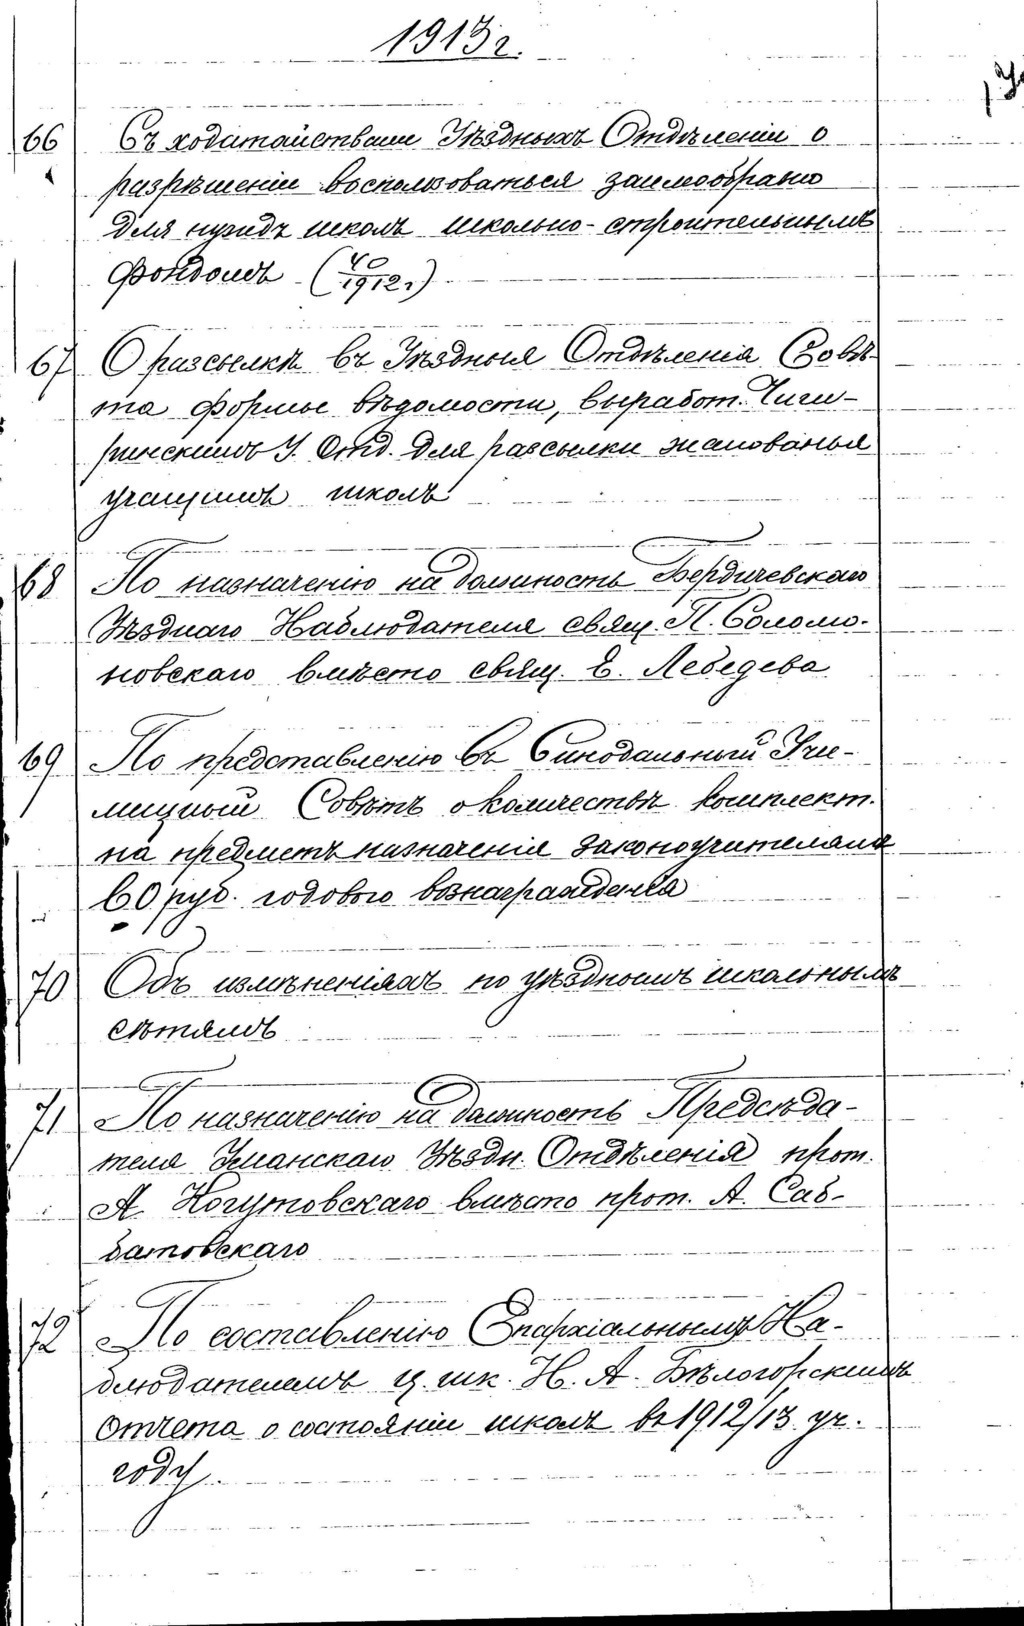 1913 г.
66 Съ ходатайствами Уѣздныхъ Отдѣленій о
разрѣшеніи воспользоваться заимообразно
для нуждъ школъ школьно-строительнымъ
фондомъ (40/1912 г.)
67 О разсылкѣ въ Уѣздныя Отдѣленія Совѣ-
та формы вѣдомости, выработ. Чиги-
ринскимъ У. Отд. для разсылки жалованья
учащимъ школъ
68 По назначенію на должность Бердичевскаго
Уѣзднаго Наблюдателя свящ. П. Соломо-
новскаго вмѣсто свящ. Е. Лебедева
69 По представленію въ Синодальный Учи-
лищный Совѣтъ о количествѣ комплект.
на предметъ назначенія законоучителямъ
60 руб. годового вознагражденія
70 Объ измѣненіяхъ по уѣзднымъ школьнымъ
сѣтямъ
71 По назначенію на должность Предсѣда-
теля Уманскаго Уѣздн. Отдѣленія прот.
А. Ногутовскаго вмѣсто прот. А. Саб-
батовскаго
72 По составленію Епархіальнымъ На-
блюдателемъ ц. шк. Н. А. Бѣлогорскимъ
отчета о состояніи школъ въ 1912/13 уч.
году.